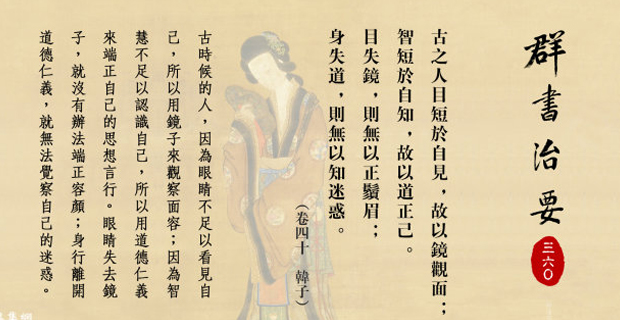 群書治要
三六〇
古之人目短於自見，故以鏡觀面；
智短於自知，故以道正己。
目失鏡，則無以正鬚眉；
身失道，則無以知迷惑。
（卷四十　韓子）
古時候的人，因為眼睛不足以看見自
己，所以用鏡子來觀察面容；因為智
慧不足以認識自己，所以用道德仁義
來端正自己的思想言行。眼睛失去鏡
子，就沒有辦法端正容顏；身行離開
道德仁義，就無法覺察自己的迷惑。